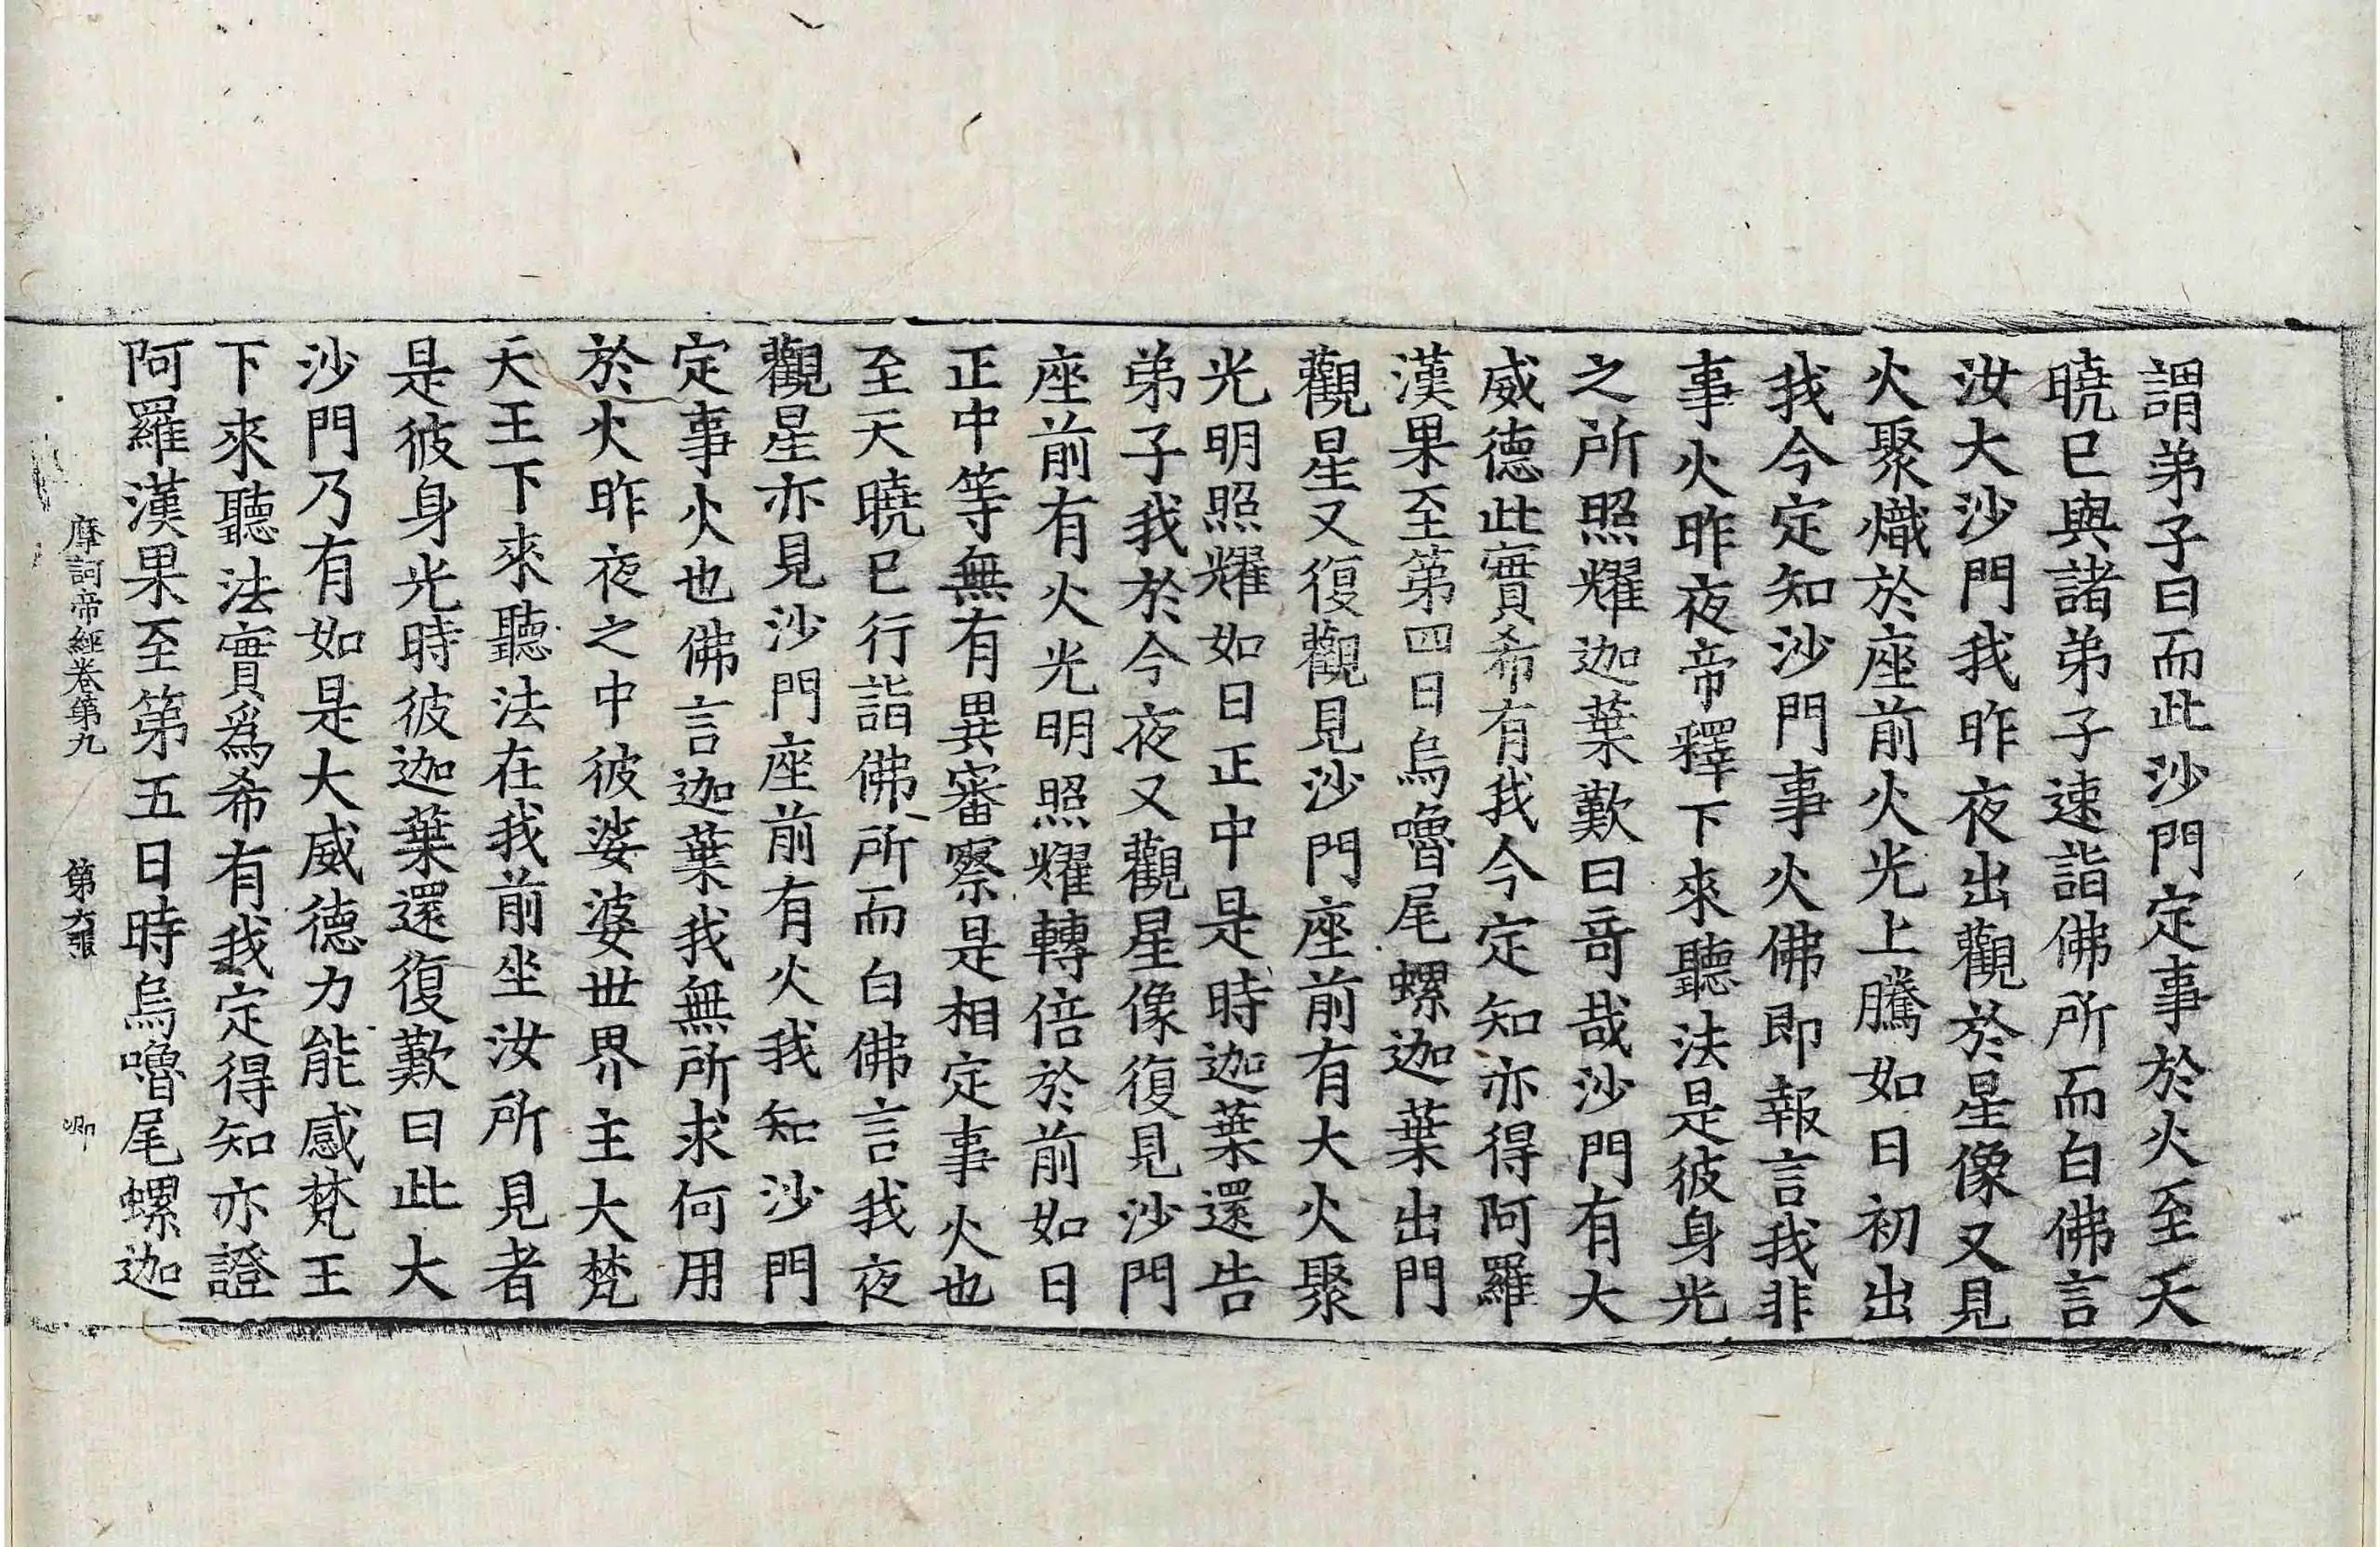 謂弟子曰而此沙門定事於火至天
曉已與諸弟子速詣佛所而白佛言
汝大沙門我昨夜出觀於星像又見
火聚熾於座前火光上騰如日初出
我今定知沙門事火佛即報言我非
事火昨夜帝釋下來聽法是彼身光
之所照耀迦葉歎曰奇哉沙門有大
威德此實希有我今定知亦得阿羅
漢果至第四日烏嚕尾螺迦葉出門
觀星又復觀見沙門座前有大火聚
光明照耀如日正中是時迦葉還告
弟子我於今夜又觀星像復見沙門
座前有火光明照耀轉倍於前如日
正中等無有異審察是相定事火也
至天曉已行詣佛所而白佛言我夜
觀星亦見沙門座前有火我知沙門
定事火也佛言迦葉我無所求何用
於火昨夜之中彼娑婆世界主大梵
天王下來聽法在我前坐汝所見者
是彼身光時彼迦葉還復歎曰此大
沙門乃有如是大威德力能感梵王
下來聽法實為希有我定得知亦證
阿羅漢果至第五日時烏嚕尾螺迦
摩訶帝經卷第九 第張